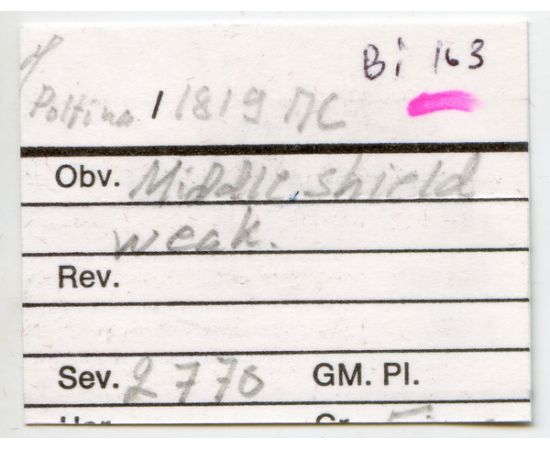 Bi 163
Poltina / 1819 ПС
Obv. Middle shield
weak.
Rev.
Sev. 2770 GM. Pl.